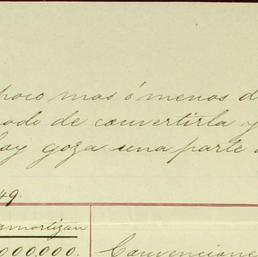 poco mas ó menos d
odo de convertirla y
hay goza una parte
49.
amortizan
000000.
Convencione